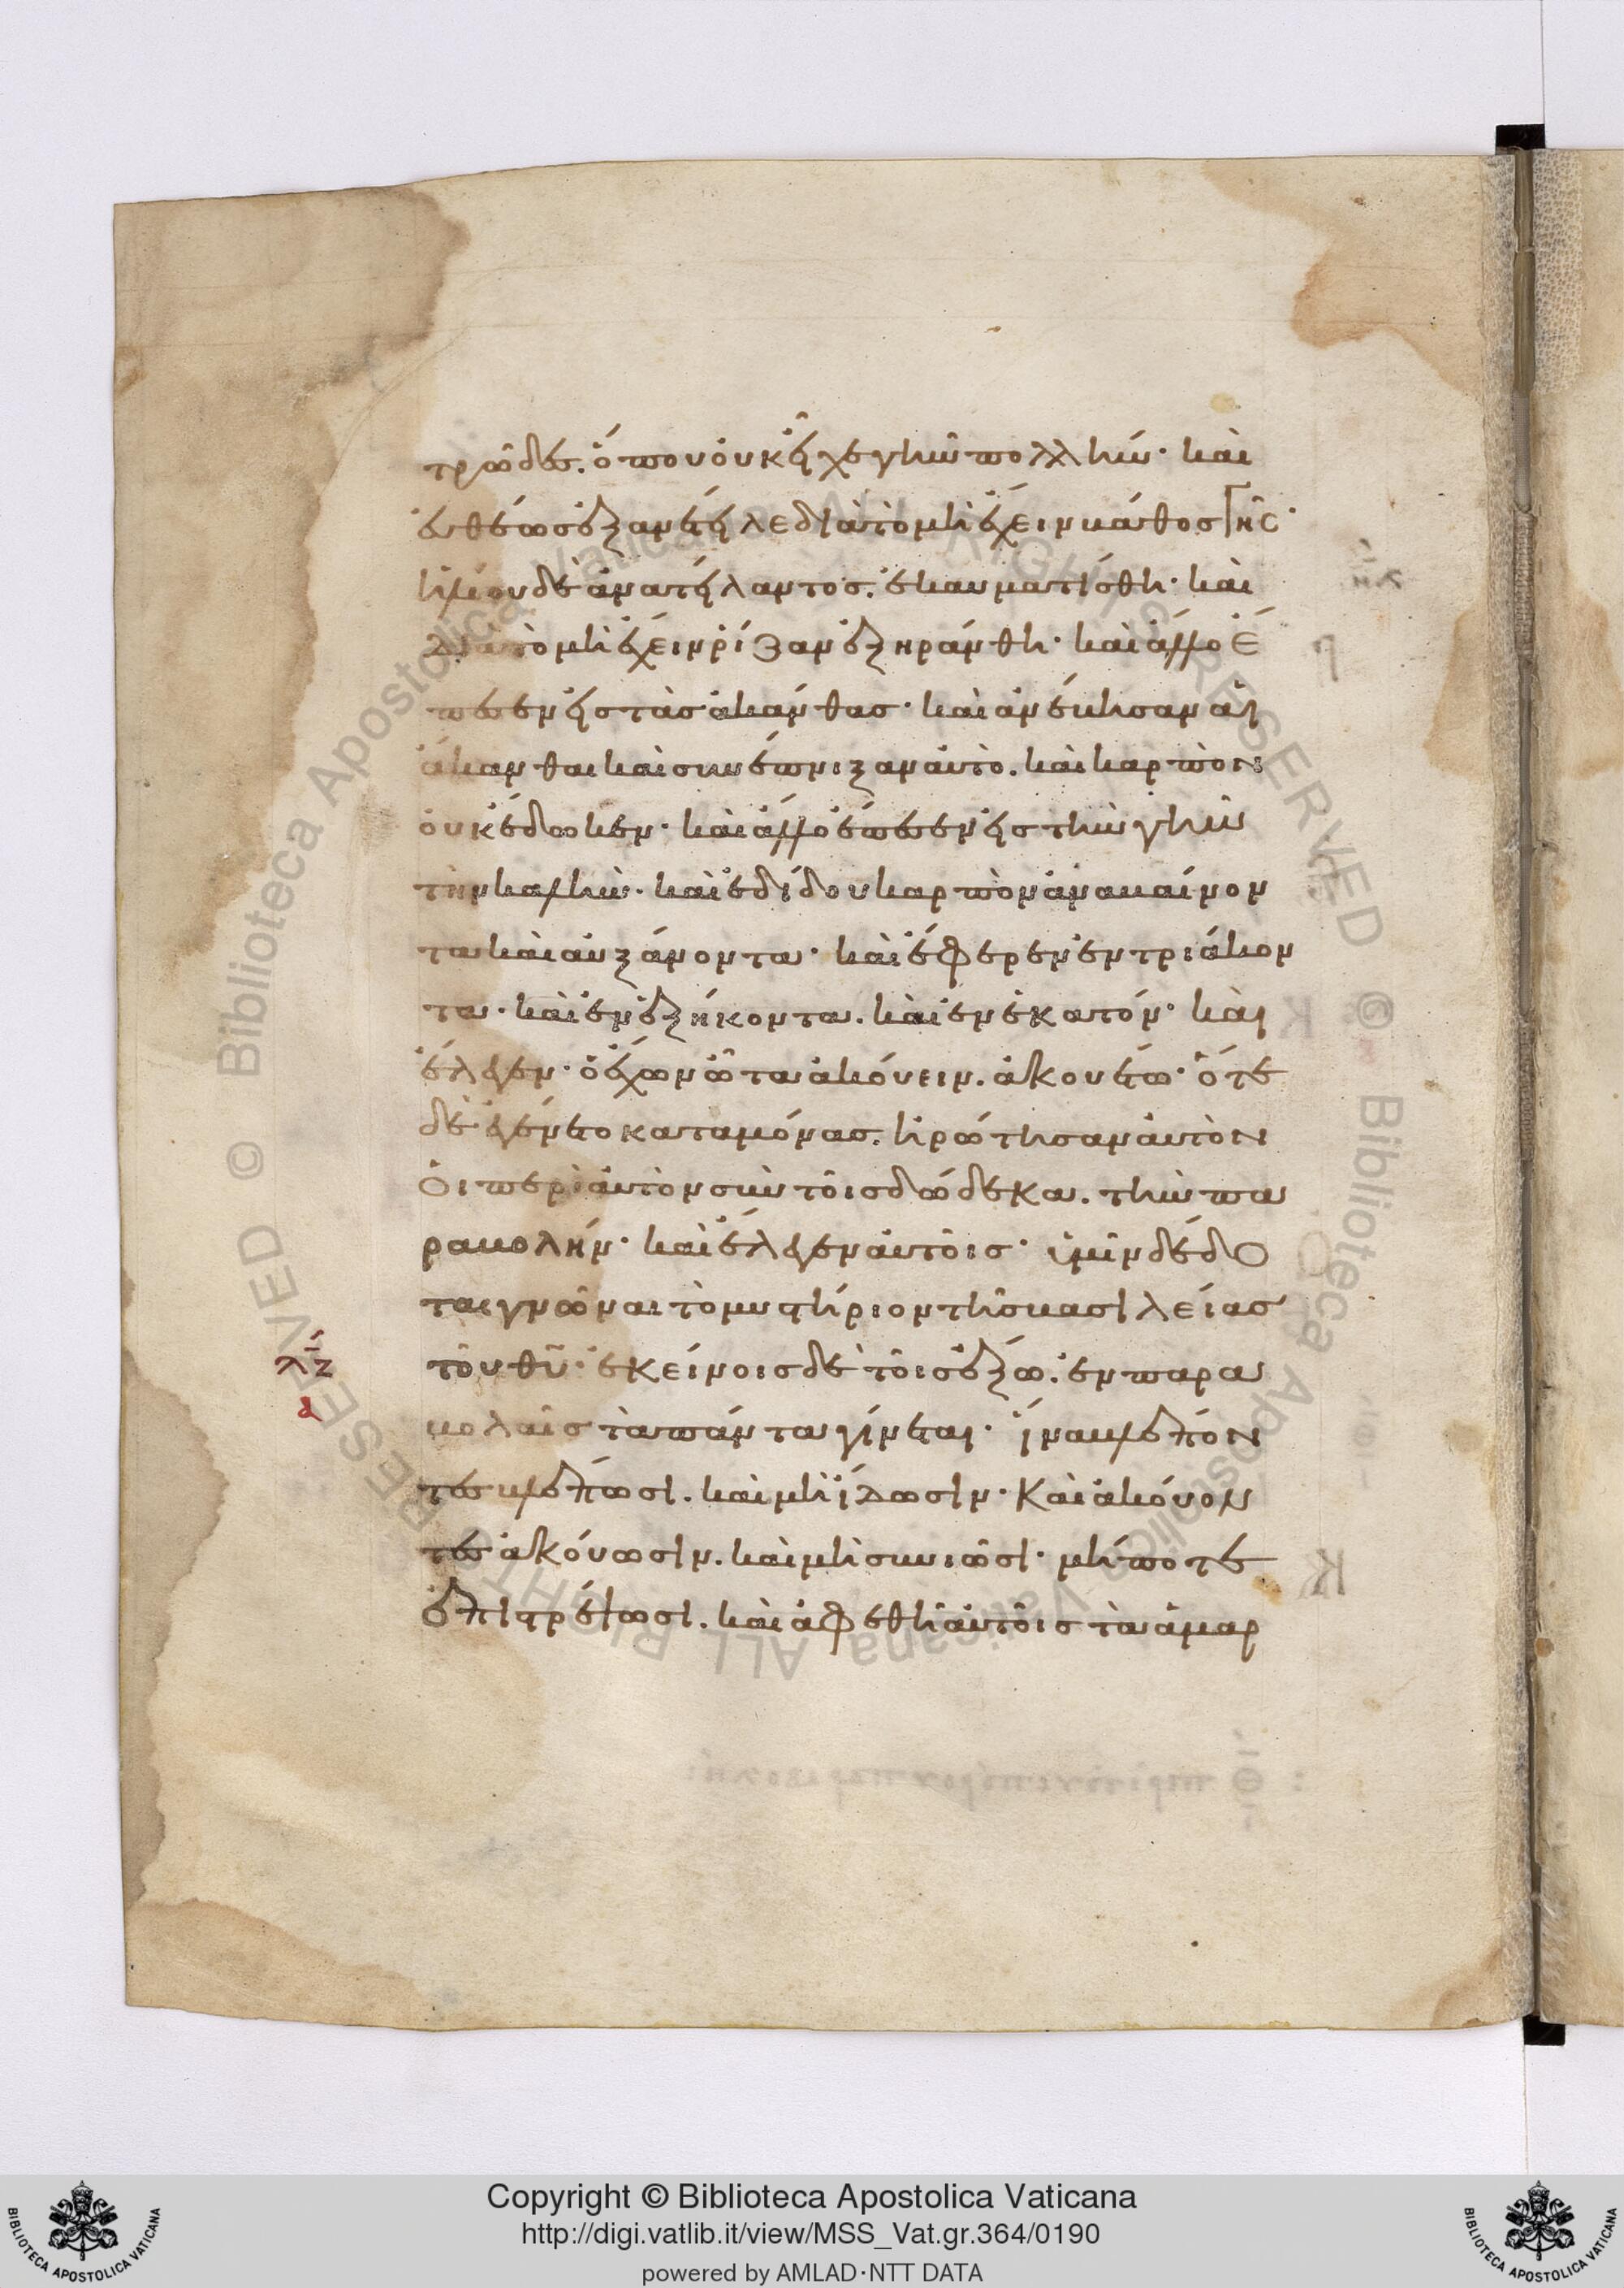 τρῶδες. ὅπου οὐκ εἶχε γῆν πολλήν· καὶ
εὐθέως ἐξανέτειλε διὰ τὸ μὴ ἔχειν βάθος γῆς·
ἡλίου δὲ ἀνατείλαντος. ἐκαυματίσθη· καὶ
διὰ τὸ μὴ ἔχειν ῥίζαν ἐξηράνθη· καὶ ἄλλο ἔ
πεσεν εἰς τὰς ἀκάνθας· καὶ ἀνέβησαν αἱ
ἄκανθαι καὶ συνέπνιξαν αὐτό. καὶ καρπὸν
οὐκ ἔδωκεν· καὶ ἄλλο ἔπεσεν εἰς τὴν γῆν
τὴν καλὴν. καὶ ἐδίδου καρπὸν ἀναβαίνον
τα καὶ αὐξάνοντα· καὶ ἔφερεν ἐν τριάκον
τα· καὶ ἐν ἑξήκοντα. καὶ ἐν ἑκατόν· καὶ
ἔλεγεν· ὁ ἔχων ὦτα ἀκούειν. ἀκουέτω· ὅτε
δὲ ἐγένετο καταμόνας. ἠρώτησαν αὐτὸν
οἱ περὶ αὐτὸν σὺν τοῖς δώδεκα. τὴν πα
ραβολήν· καὶ ἔλεγεν αὐτοῖς· ὑμῖν δέδο
ται γνῶναι τὸ μυστήριον τῆς βασιλείας
τοῦ θυ· ἐκείνοις δὲ τοῖς ἔξω. ἐν παρα
βολαῖς τὰ πάντα γίνεται· ἵνα βλέπον
τες βλέπωσι. καὶ μὴ ἴδωσιν· καὶ ἀκούον
τες ἀκούωσιν. καὶ μὴ συνιῶσι· μήποτε
ἐπιστρέψωσι. καὶ ἀφεθῆ αὐτοῖς τὰ ἁμαρ
λζ
α
Copyright © Biblioteca Apostolica Vaticana
http://digi.vatlib.it/view/MSS_Vat.gr.364/0190
powered by AMLAD·NTT DATA
BIBLIOTECA APOSTOLICA VATICANA
BIBLIOTECA APOSTOLICA VATICANA
© Biblioteca Apostolica Vaticana ALL RIGHTS RESERVED
© Biblioteca Apostolica Vaticana ALL RIGHTS RESERVED